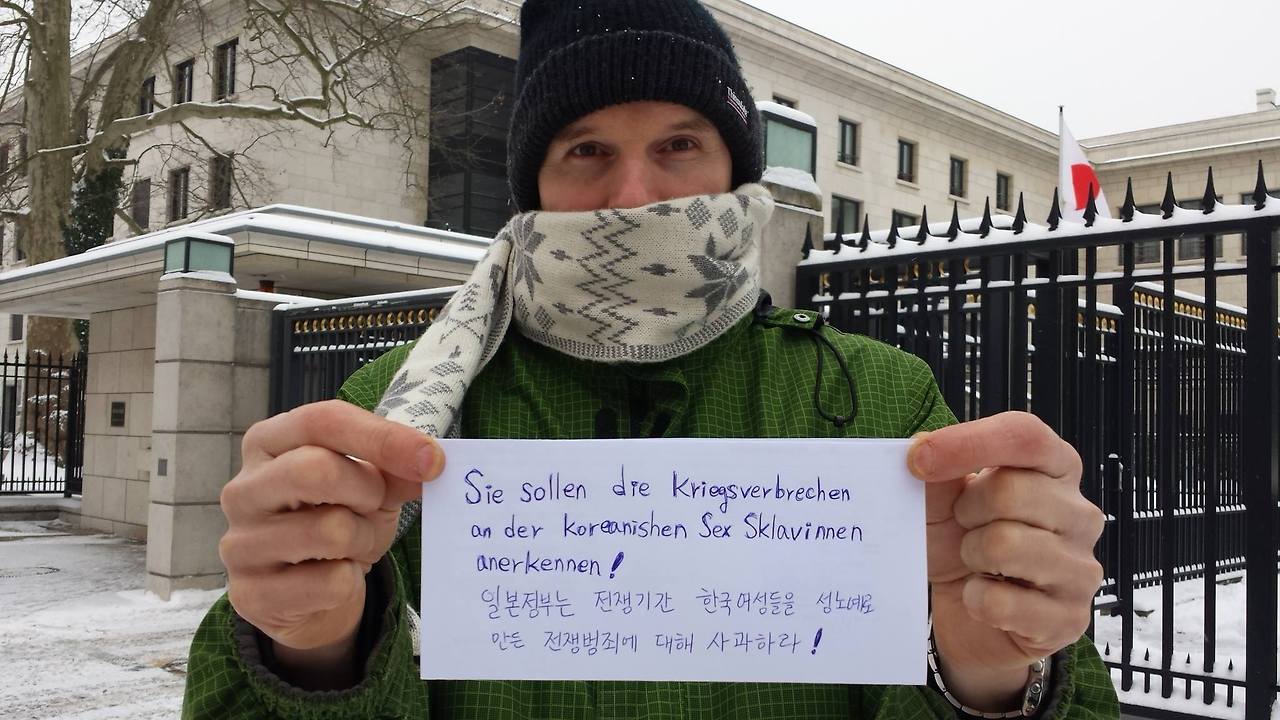 Sie sollen die Kriegsverbrechen
an der Koreanishen Sex Sklavinnen
anerkennen!
일본정부는 전쟁기간 한국여성들을 성노예로
만든 전쟁범죄에 대해 사과하라!